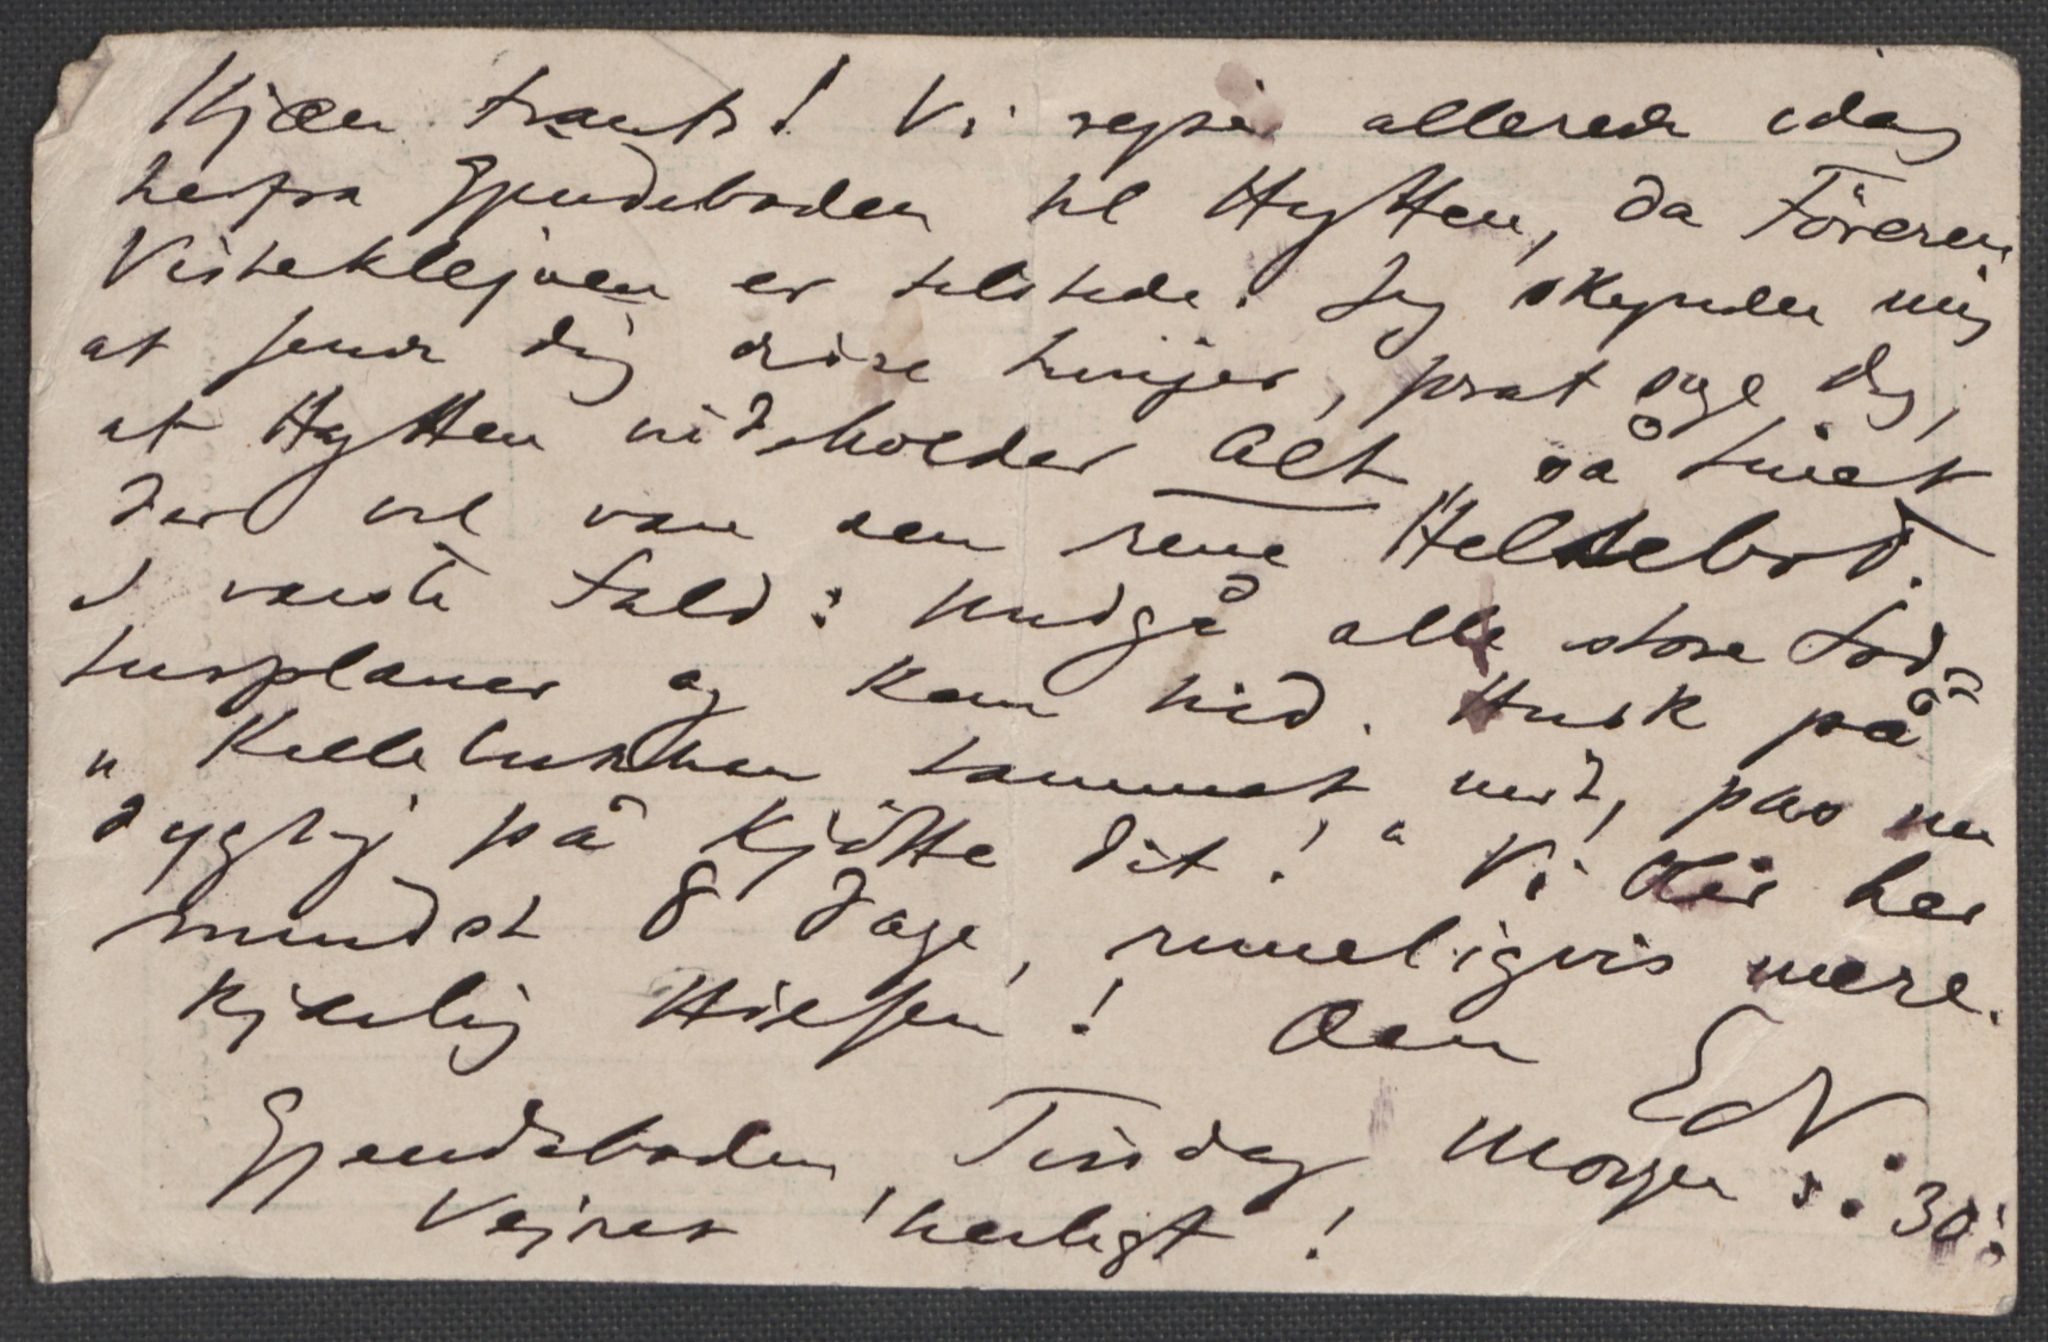 Kjære Frants! Vi rejser allerede idag
herfra Gjendeboden til Hytten, da Föreren
Visteklejven er tilstede. Jeg skynder mig
at sende dig disse Linjer, for at sige dig,
at Hytten indeholder Alt, så Livet
der vil være den rene Helsebod.
I værste Fald: Undgå alle store Fod-
turplaner og kom hid. Husk på
" Killebukken Lammet mit, pas nu
dygtig på Kjötte dit! " Vi blir her
mindst 8 Dage, rimeligvis mere.
Kjærlig Hilsen! Din EdV.
Gjendeboden Tirsdag Morgen : : 30 :
Vejret herligt !